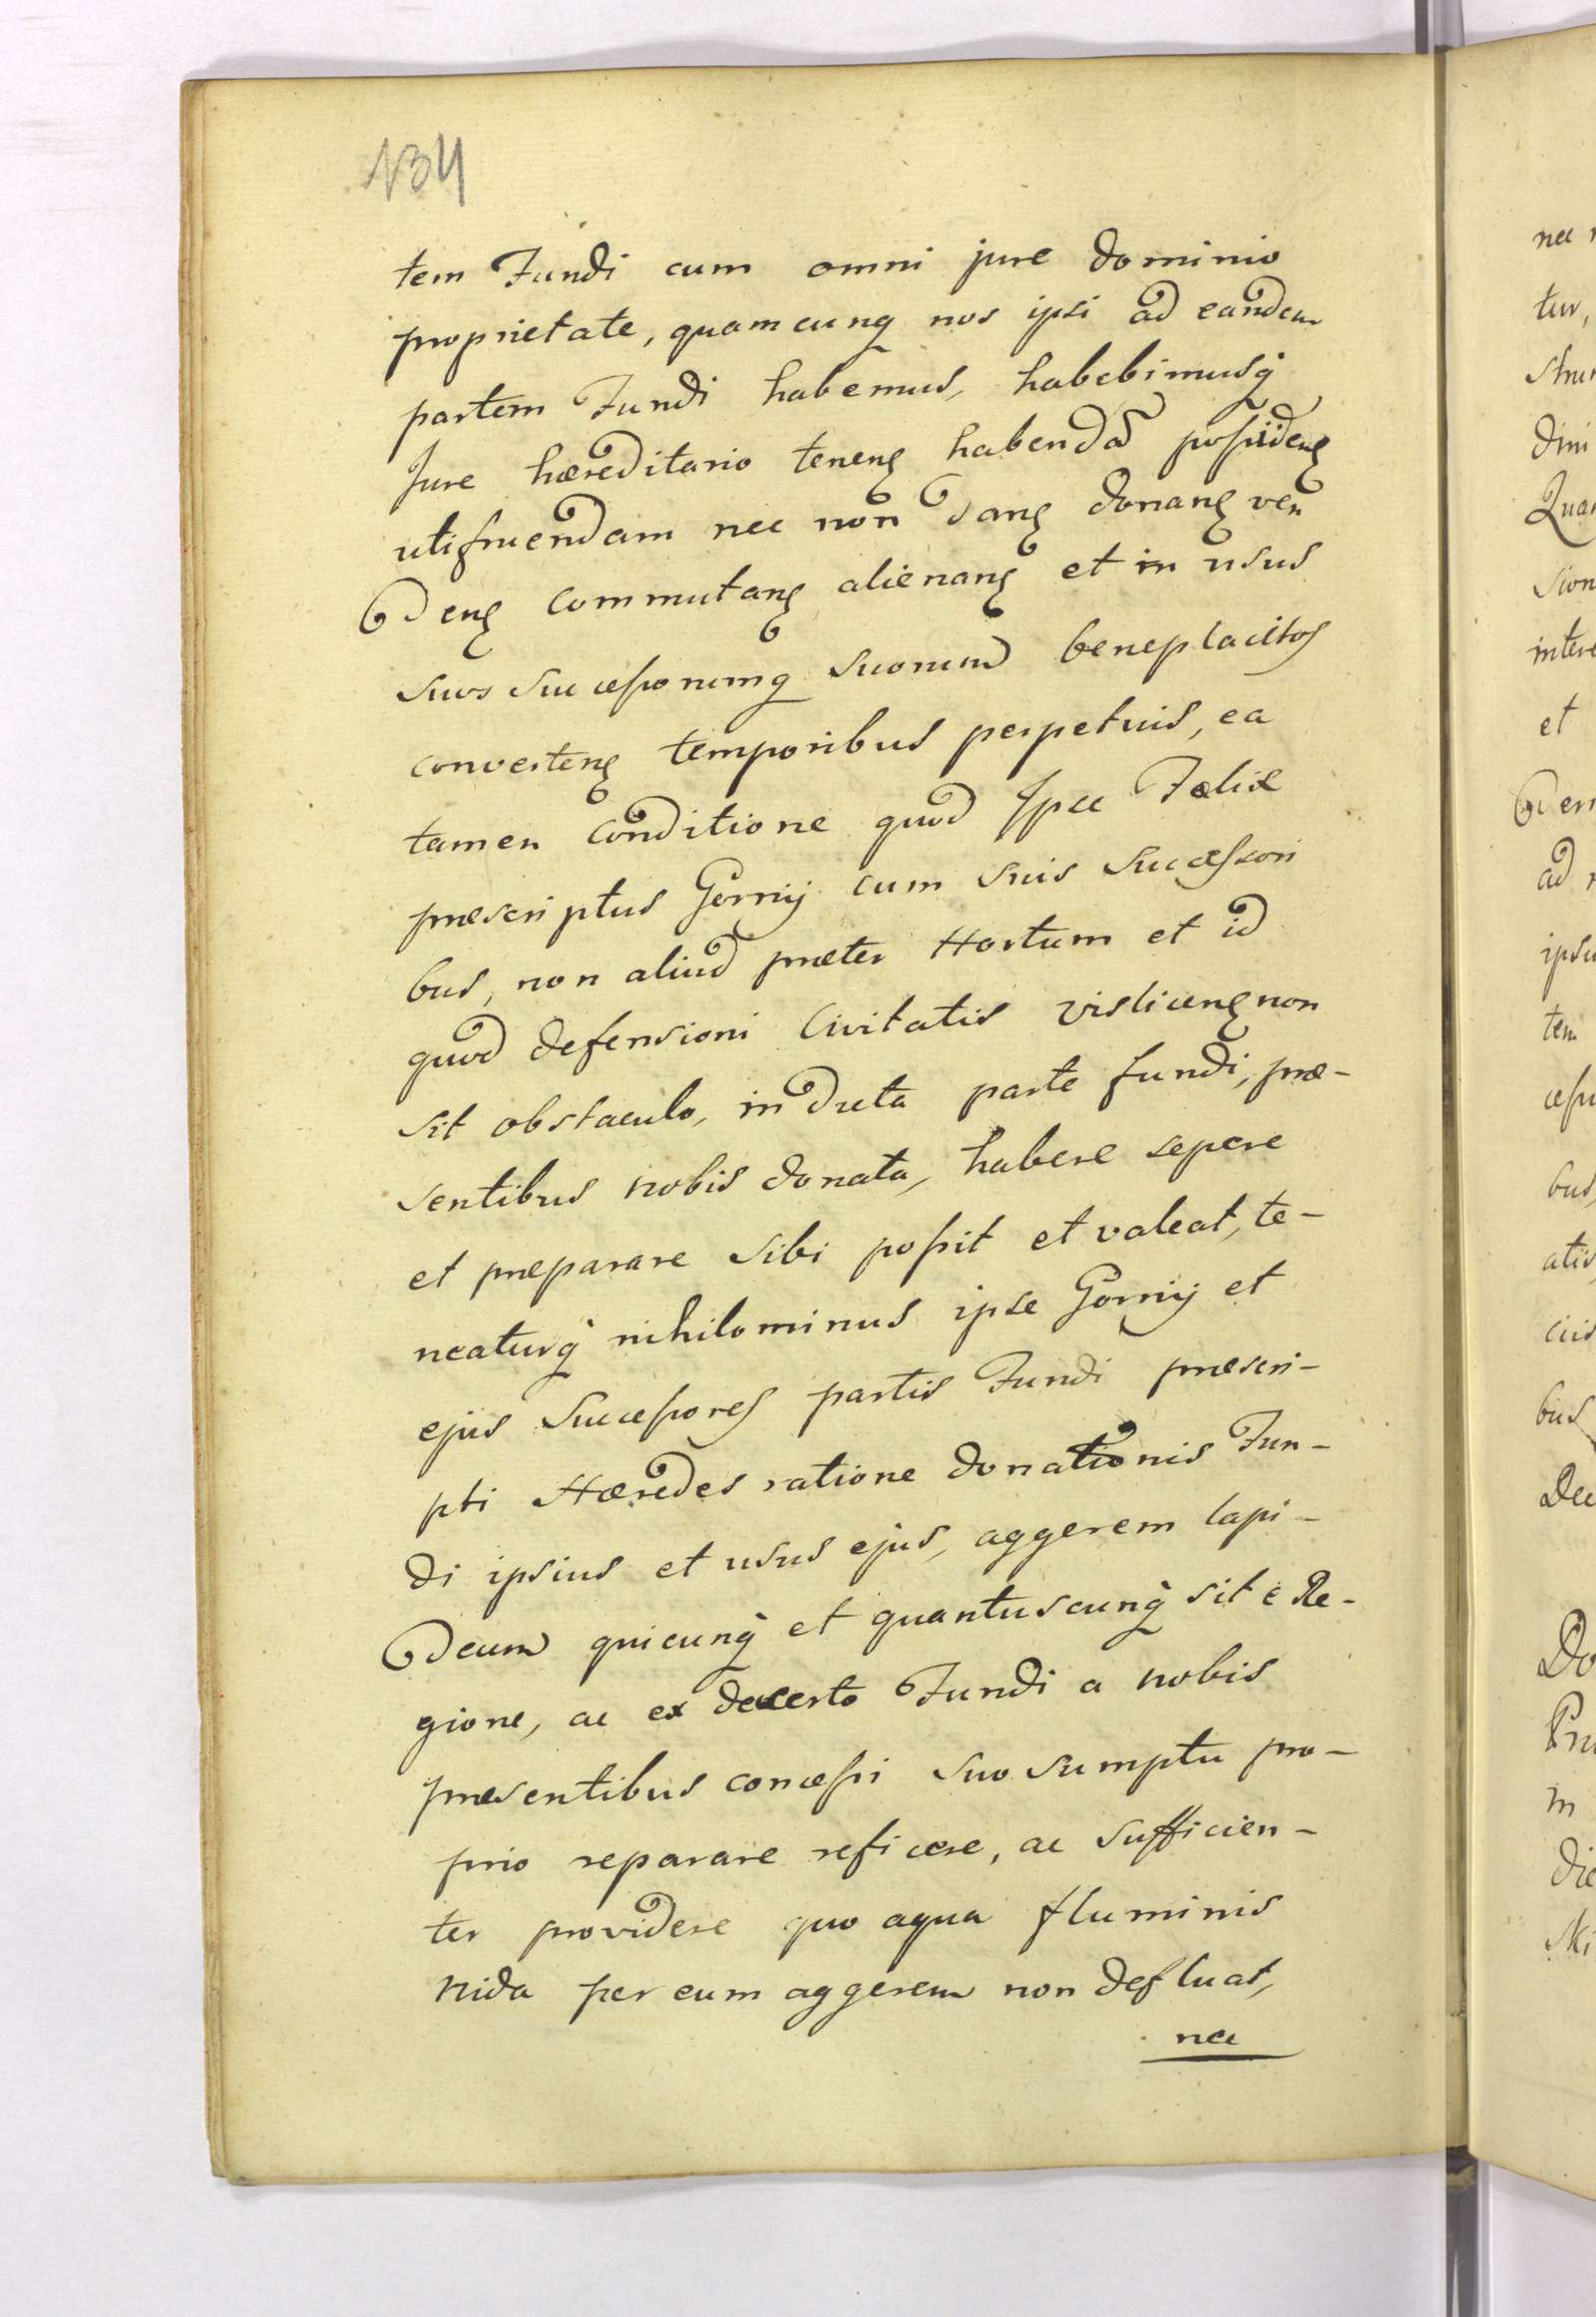 134
tem Fundi cum omni jure dominio
proprietate, quamcunq nos ipsi ad eandem
partem Fundi habemus, habebimusq
Jure hæreditario tenenꝫ habendã possidenꝫ
utifruendam nec non danꝫ donanꝫ ven
denꝫ commutanꝫ alienanꝫ et in usus
suos successorumq suorum beneplacitos
convertenꝫ temporibus perpetuis, ea
tamen conditione quod Ipse Fælix
præscriptus Gornij cum suis successori
bus, non aliud præter Hortum et id
quod defensioni Civitatis vislicenꝫ non
sit obstaculo, in dicta parte fundi, præ-
sentibus nobis donata, habere sepere
et præparare sibi possit et valeat, te-
neaturq nihilominus ipse Gornij et
ejus Successores partis Fundi præscri-
pti Hæredes ratione donationis Fun-
di ipsius et usus ejus, aggerem lapi-
deum quicunq et quantuscunq sit e Re-
gione, ac ex decerto Fundi a nobis
præsentibus concessi suo sumptu pro-
prio reparare reficere, ac sufficien-
ter providere quo aqua fluminis
Nida per eum aggerem non defluat,
nec
nec
tur,
dini
Quan
sion
inter
et
den
ad
ipsu
tem
cessu
bus,
atis
ciis
bus
Dec
Do
in
die
ski